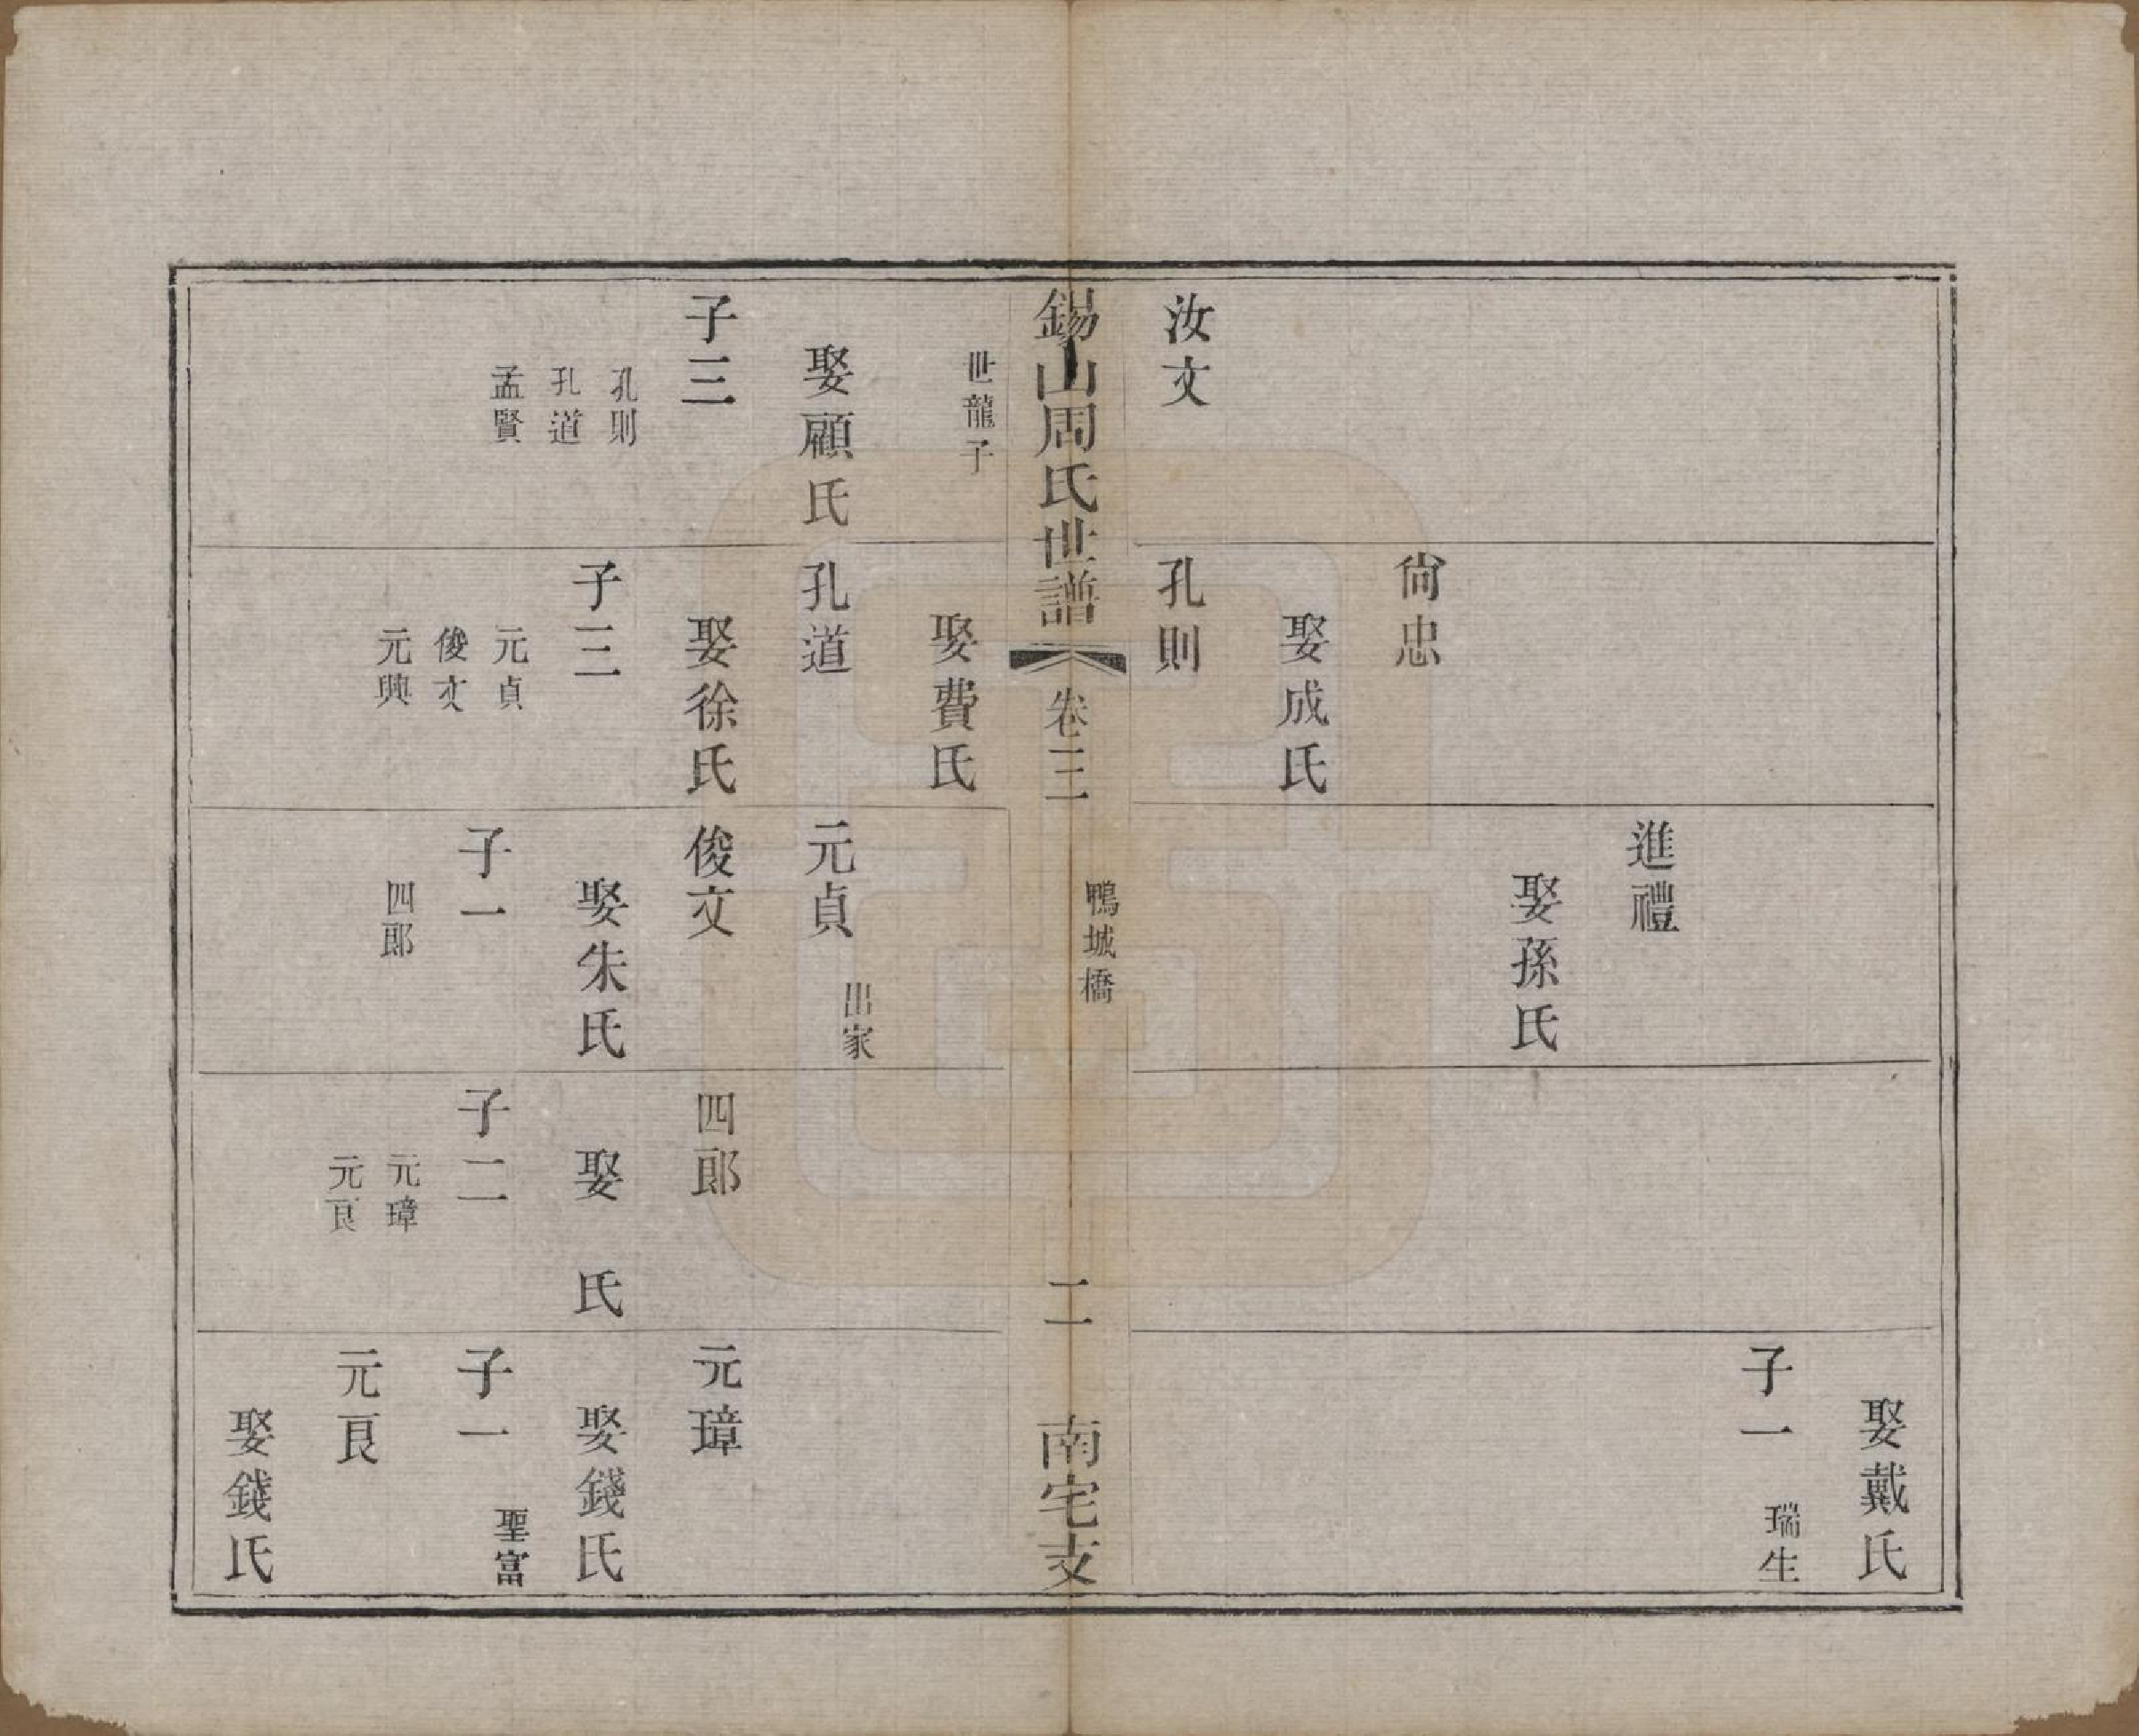 娶戴氏
子一
瑞生
進禮
娶孫氏
尙忠
娶成氏
汝文
孔則
錫山周氏世譜
卷三
鴨城橋
二
南宅支
世龍子
娶顧氏
子三
孔則
孔道
孟賢
娶費氏
孔道
娶徐氏
子三
元貞
俊文
元興
元貞
出家
俊文
娶朱氏
子一
四郎
四郎
娶　氏
子二
元璋
元良
元璋
娶錢氏
子一
聖富
元良
娶錢氏